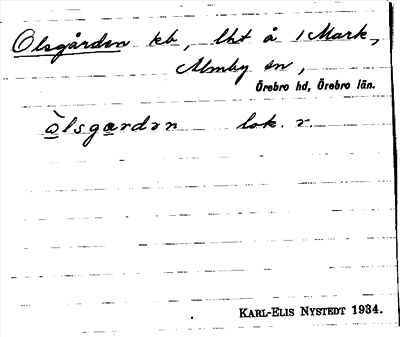 Olsgården kb, lht å 1 Mark,
Almby sn,
Örebro hd, Örebro län.
ὼlsgærdɜn lok. r.
KARL-ELIS NYSTEDT 1934.